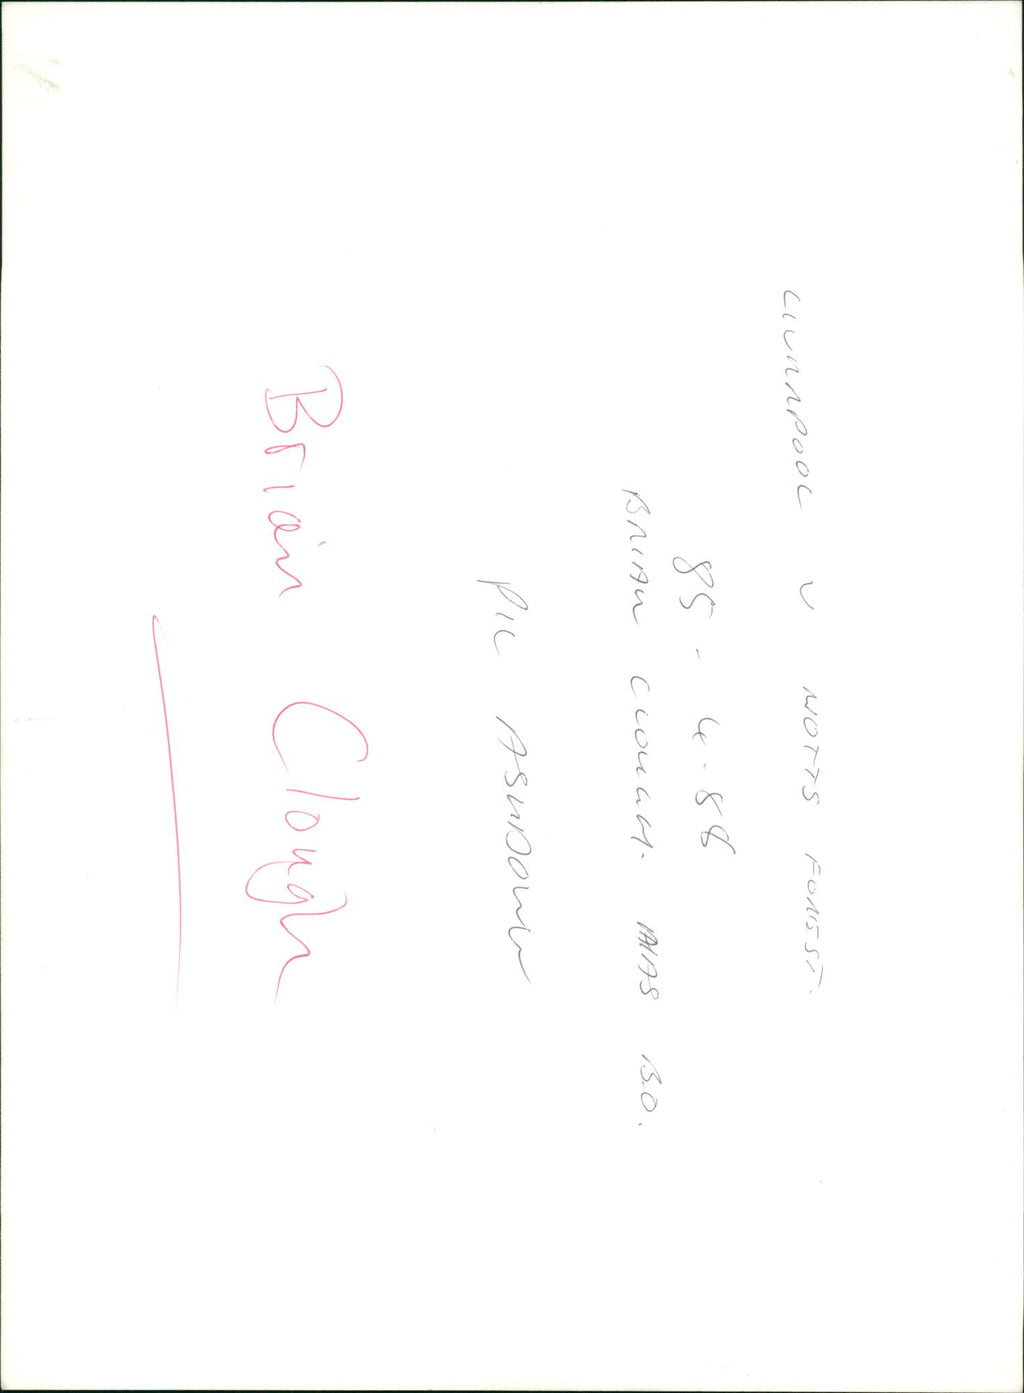 LIVERPOOL V NOTTS FOREST.
85-4-88
BRIAN CLOUGH. B.O.
PIC ASHDOWN
Brian Clough